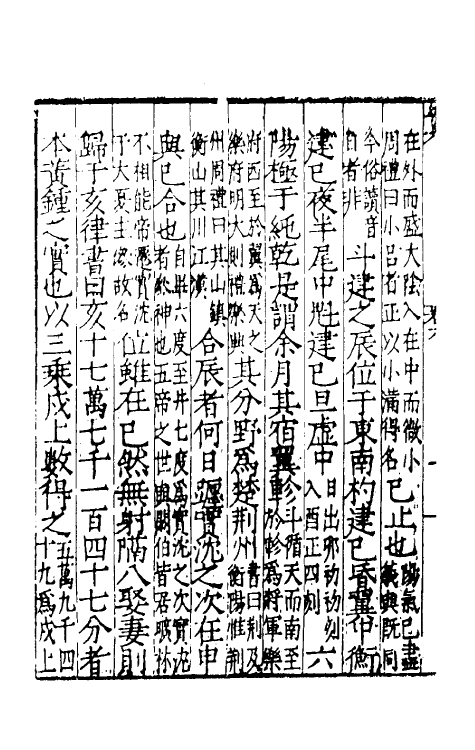 在外而盛大陰入在中而微小
周禮曰小呂者正以小滿得名
巳止也
陽氣已盡
義與既同
今俗讀音
自者非
斗建之辰位于東南杓建巳昏翼中衡
建巳夜半尾中魁建巳旦虛中
日出卯初初刻
入酉正四刻
六
陽極于純乾是謂余月其宿翼軫
斗循天而南至
於軫為將軍樂
府西至於翼為天之
樂府明大則禮樂興
其分野為楚荊州
書曰荊及
衡陽惟荊
州周禮曰其山鎮
衡山其川江漢
合辰者何日躔實沈之次在申
與巳合也
自畢六度至井七度為實沈之次實沈
者參神也五帝之世與閼伯皆居曠林
不相能帝遷實沈
于大夏主參故名
位雖在巳然無射隔八娶妻則
歸于亥律書曰亥十七萬七千一百四十七分者
本黃鍾之實也以三乘戌上數得之
五萬九千四
十九為戌上